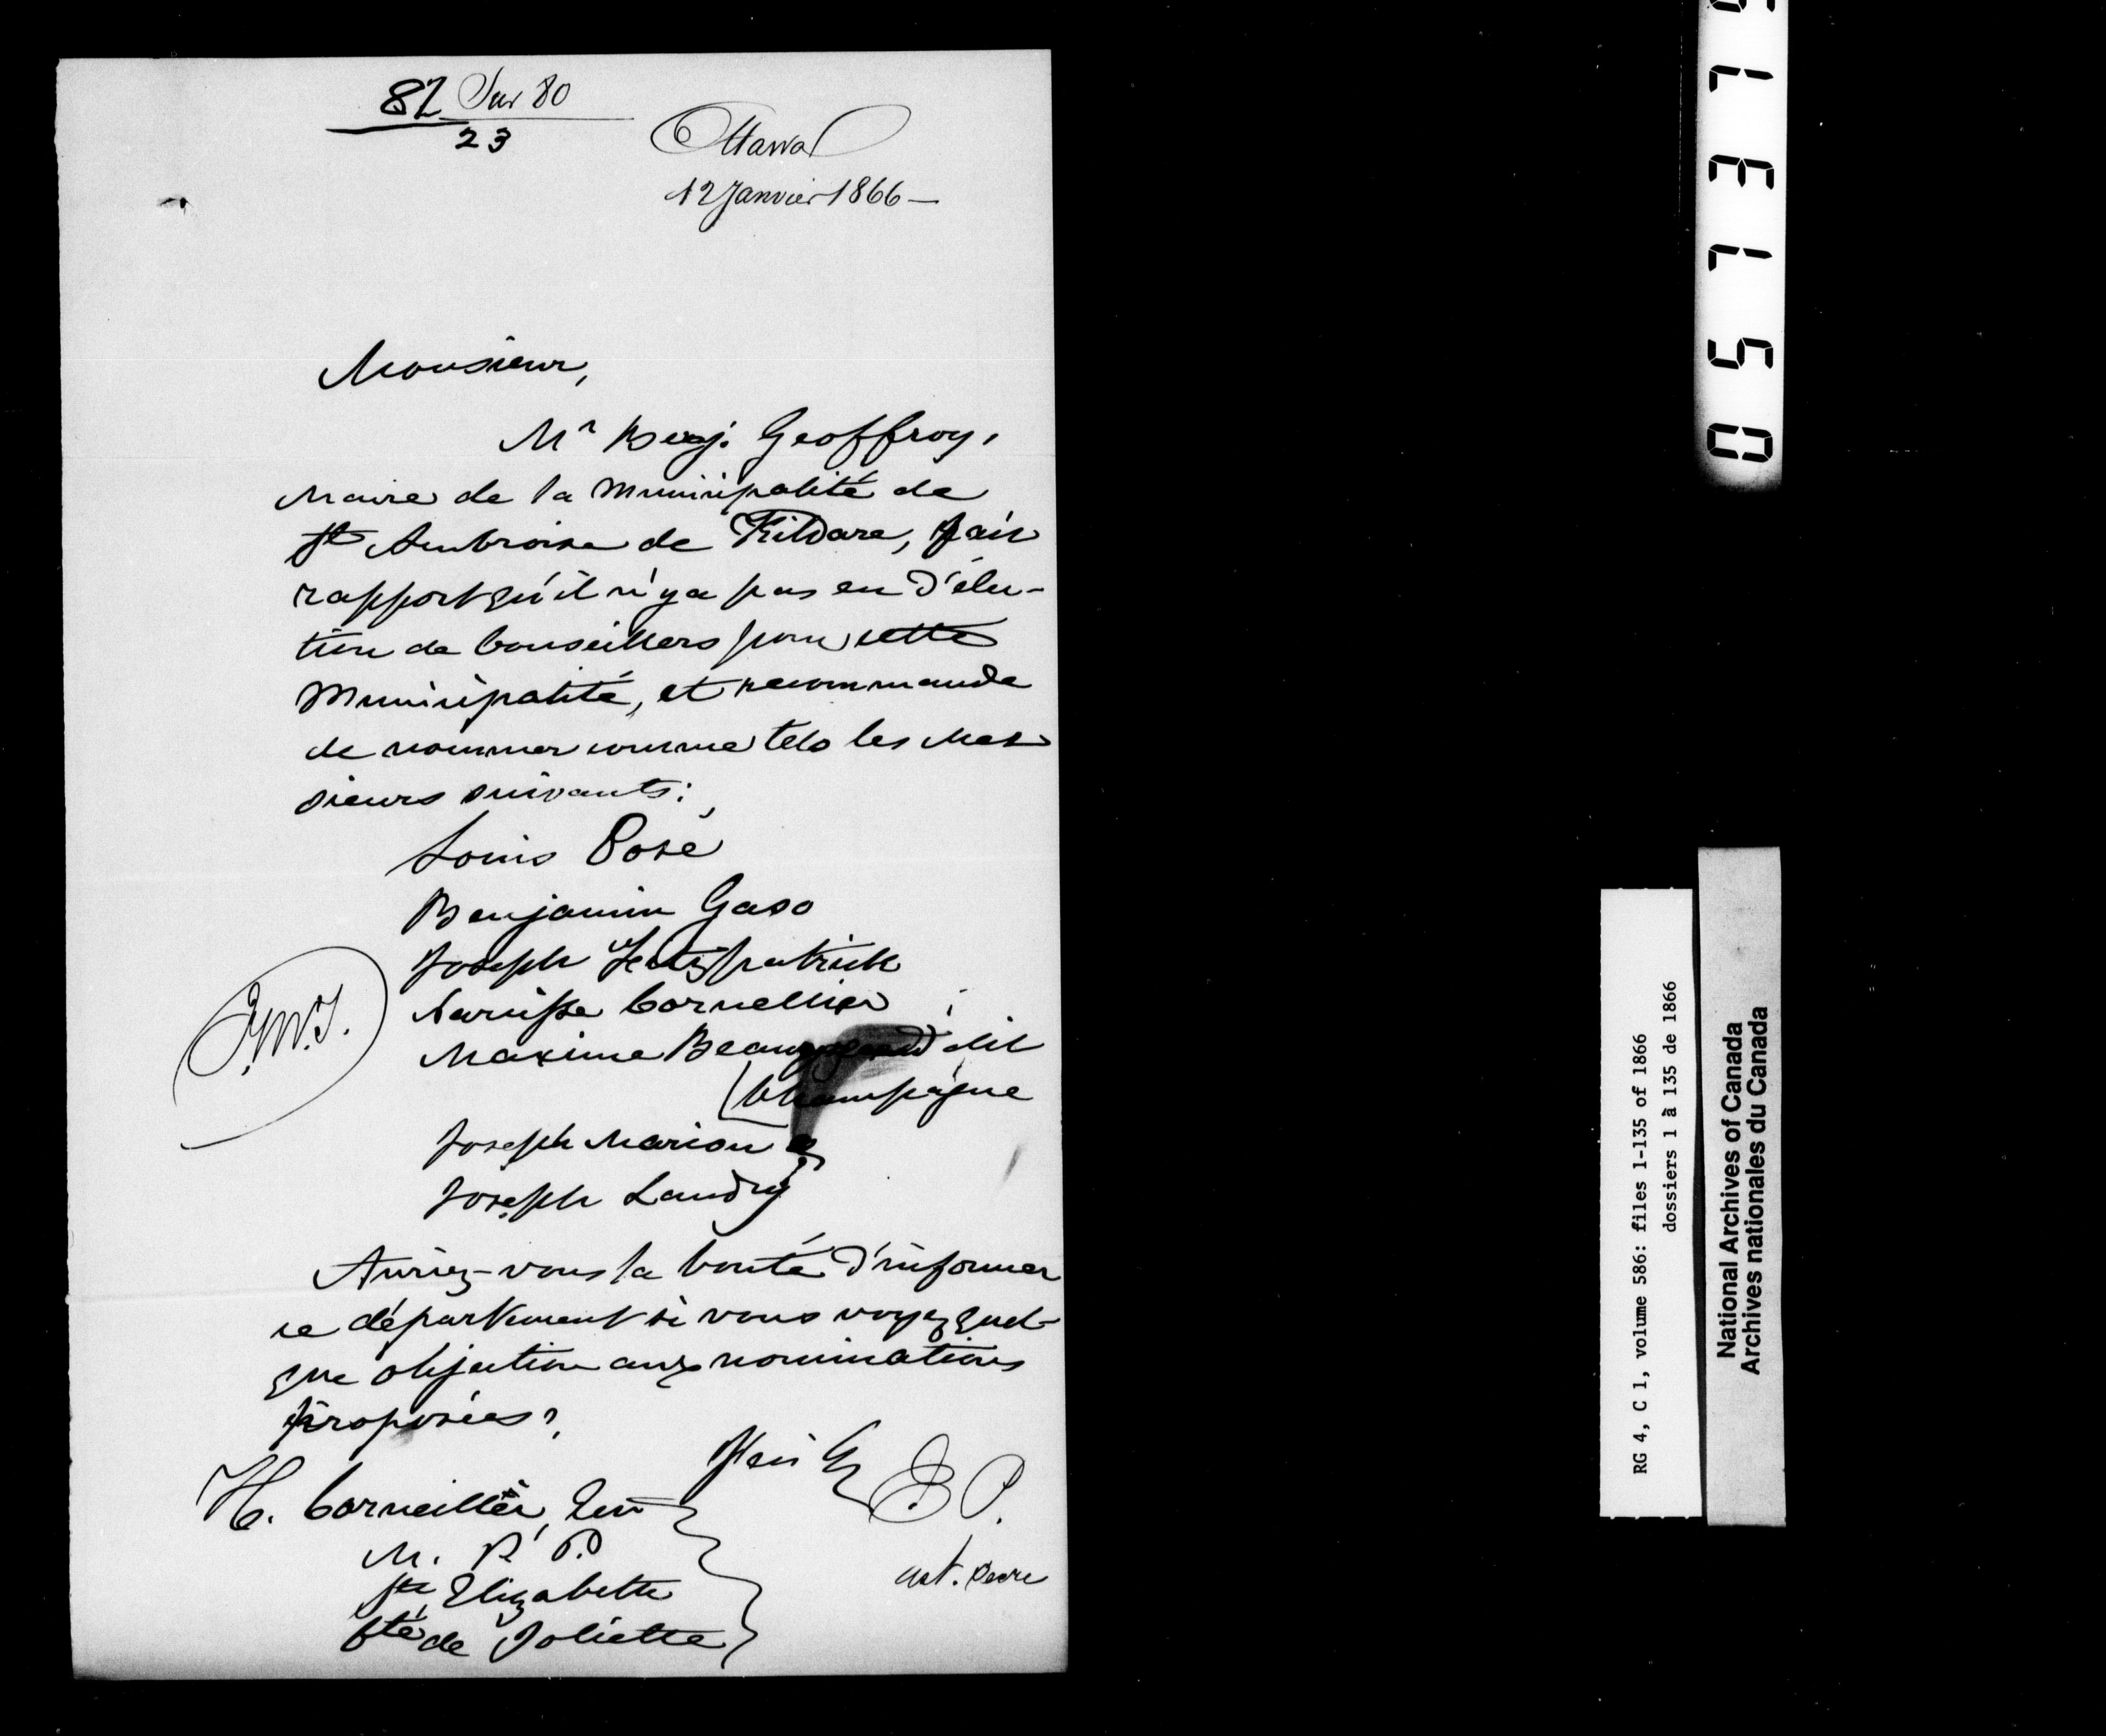 81 Sur 80
23
Ottawa
12 Janvier 1866 —
Monsieur,
Mr Benj. Geoffroy,
Maire de la Municipalité de
St Ambroise de Kildare, fait
rapport qu'il n'y a pas eu d'élec-
tion de Conseillers pour cette
Municipalité, et recommande
de nommer comme tels les Mes
sieurs suivants:
Louis
Benjamin
Joseph Fitzpatrick
Narcisse Cornellier
Maxime Beaugrand dit
Champagne
Joseph Marion &
Joseph Landry
Auriez-vous la bonté d'informer
ce département si vous voyez quel-
que objection aux nominations
proposées?
B P.
H. Corneillier
M. P. P.
Ste Elizabeth
Cté de Joliette
ast. Secre
0513151
RG 4, C 1, volume 586: files 1-135 of 1866
dossiers 1 à 135 de 1866
National Archives of Canada
Archives nationales du Canada